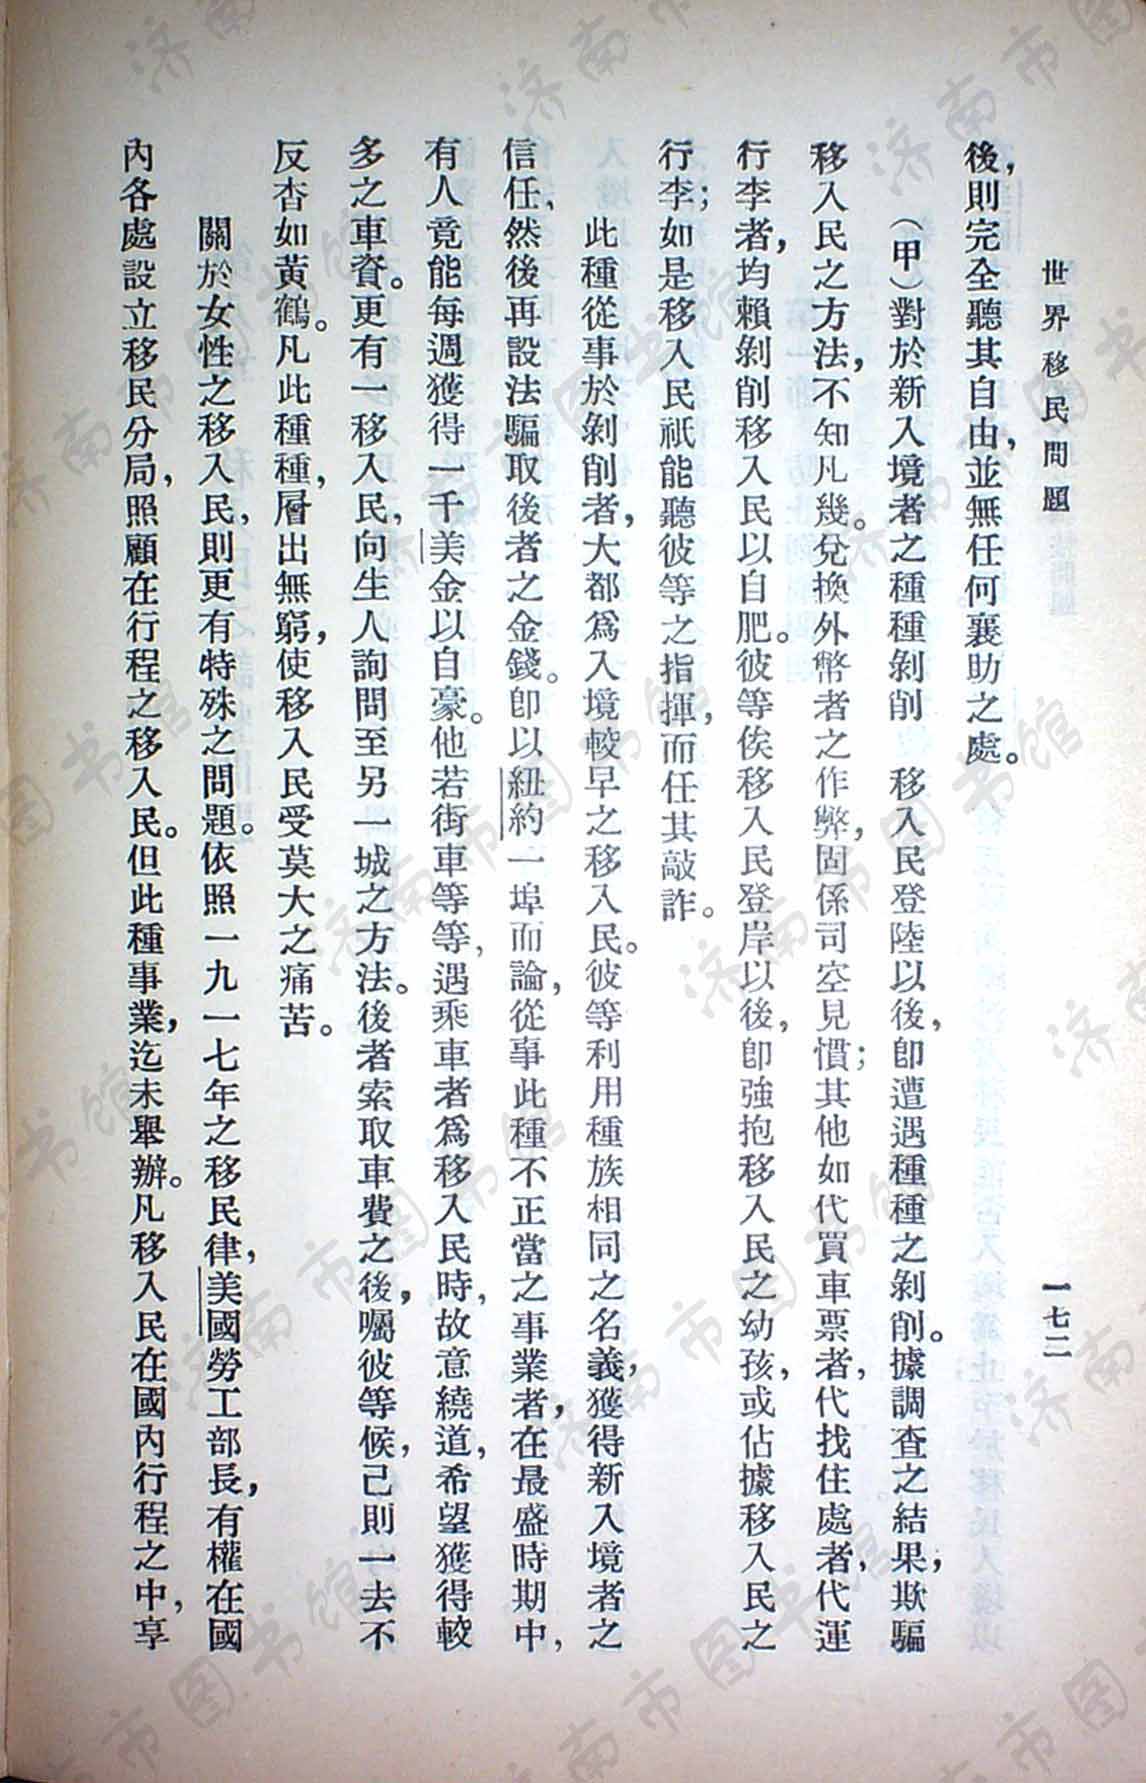 世界移民問題
一七二
後，則完全聽其自由，並無任何襄助之處。
（甲）對於新入境者之種種剝削　移入民登陸以後，卽遭遇種種之剝削。據調查之結果，欺騙
移入民之方法，不知凡幾。兌換外幣者之作弊，固係司空見慣；其他如代買車票者，代找住處者，代運
行李者，均賴剝削移入民以自肥。彼等俟移入民登岸以後，卽強抱移入民之幼孩，或佔據移入民之
行李；如是移入民祇能聽彼等之指揮，而任其敲詐。
此種從事於剝削者，大都爲入境較早之移入民。彼等利用種族相同之名義，獲得新入境者之
信任，然後再設法騙取後者之金錢。卽以紐約一埠而論，從事此種不正當之事業者，在最盛時期中，
有人竟能每週獲得一千美金以自豪。他若街車等等，遇乘車者爲移入民時，故意繞道，希望獲得較
多之車資。更有一移入民，向生人詢問至另一城之方法。後者索取車費之後，囑彼等候，己則一去不
反杳如黃鶴。凡此種種，層出無窮，使移入民受莫大之痛苦。
關於女性之移入民，則更有特殊之問題。依照一九一七年之移民律，美國勞工部長，有權在國
內各處設立移民分局，照顧在行程之移入民。但此種事業，迄未舉辦。凡移入民在國內行程之中，享
济南市图书馆